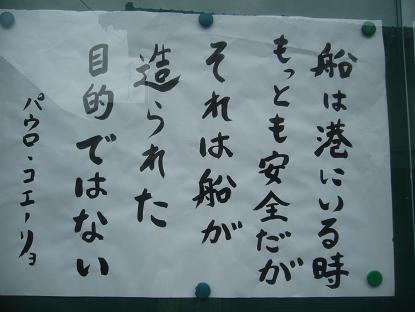 船は港にいる時
もっとも安全だが
それは船が
造られた
目的ではない
パウロ・コエーリョ